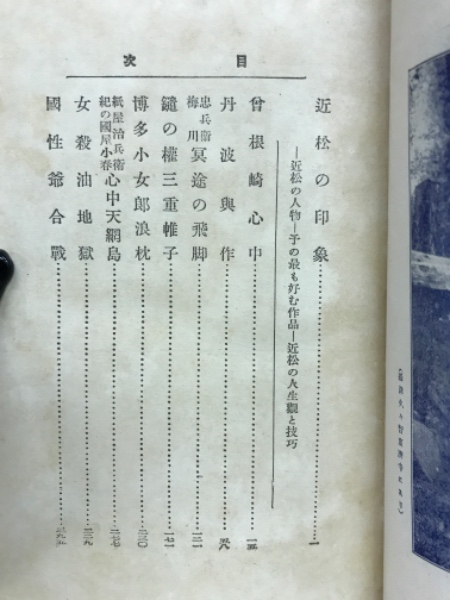 目次
近松の印象……………一
―近松の人物―予の最も好む作品―近松の人生觀と技巧
曾根崎心中……………一五
丹波與作……………五八
忠兵衞梅川冥途の飛脚……………一二一
鑓の權三重帷子……………一七一
博多小女郎浪枕……………二三〇
紙屋治兵衞紀の國屋小春心中天網島……………二七七
女殺油地獄……………三三九
國性爺合戰